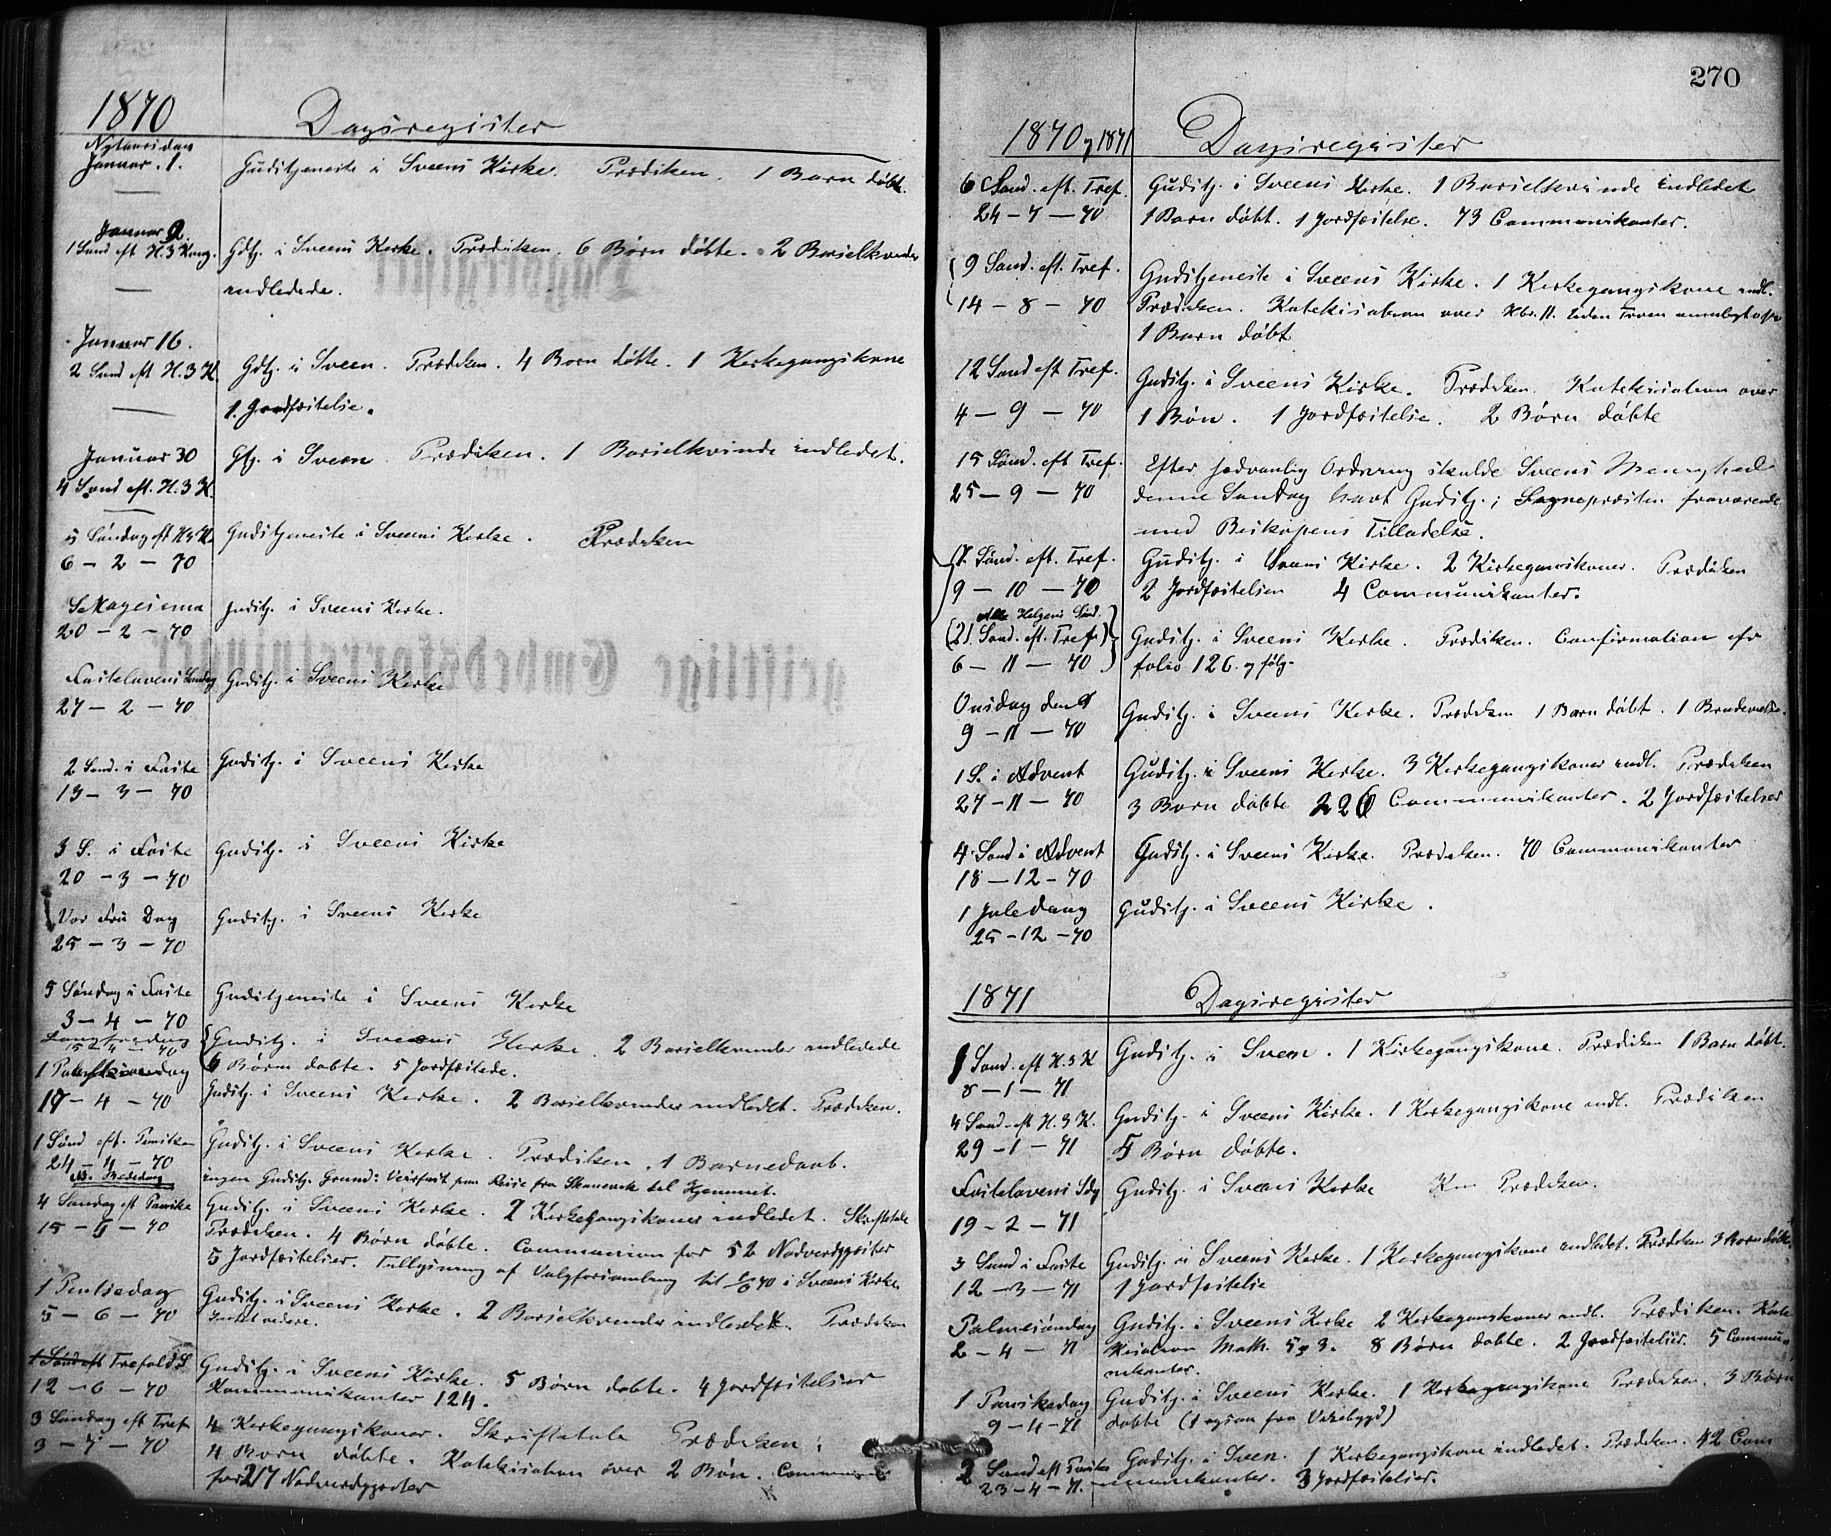 1870 Dagsregister
Nytaarsdag
Januar 1. Gudstjeneste i Sveens Kirke. Prædiken. 1 Barn døbt.
Januar 2.
1 Sønd eft H. 3 Kong. Gdtj. i Sveens Kirke. Prædiken. 6 Børn døbte. 2 Barselkvinder
indledede.
Januar 16.
2 Sønd eft H. 3 K. Gdtj. i Sveen. Prædiken. 4 Børn døbte. 1 Kirkegangskone
1 Jordfæstelse.
Januar 30 Gtj. i Sveen Prædiken. 1 Barselkvinde indledet.
4 Sønd eft. H. 3 K.
5 Søndag eft H 3 K. Gudstjeneste i Sveens Kirke. Prædiken
6 - 2 - 70
Sexagesima Gudstj. i Sveens Kirke.
20 - 2 - 70
Fastelavens Søndag Gudstj. i Sveens Kirke
27 - 2 - 70
2 Sønd. i Faste Gudstj. i Sveens Kirke
13 - 3 - 70
3 S. i Faste Gudstj. i Sveens Kirke
20 - 3 - 70
Vor Frü Dag Gudstj. i Sveens Kirke
25 - 3 - 70
5 Søndag i Faste Gudstjeneste i Sveens Kirke
3 - 4 - 70
Langfredag Gudstj. i Sveens Kirke. 2 Barselkvinder indledede
15 - 4 - 70
6 Børn døbte. 5 Jordfæstede.
1 Paaskedag Gudstj. i Sveens Kirke. 2 Barselkvinder indledet. Prædiken.
17 - 4 - 70
1 Sønd eft. Paasken Gudstj. i Sveens Kirke. Prædiken. 1 Barnedaab.
24 - 4 - 70
Bededag ingen Gudstj. Grund: Veirfast paa Reise fra Skaanevik til Hjemmet.
4 Søndag eft Paaske Gudstj. i Sveens Kirke. 2 Kirkegangskoner indledet. Skriftetale
15 - 5 - 70 Prædiken. 4 Børn døbte. Communion for 52 Nadverdgjæster
5 Jordfæstelser. Tillysning af Valgforsamling til i Sveens Kirke
1 Pintsedag Gudstj. i Sveens Kirke. 2 Barselkvinder indledet. Prædiken
5 - 6 - 70
Trefold. S. Gudstj. i Sveens Kirke. 5 Børn døbte. 4 Jordfæstelser
12 - 6 - 70 Kommunikanter 124.
3 Søndag eft Tref 4 Kirkegangskoner. Skriftetale Prædiken.
3 - 7 - 70 4 Børn døbte. Katekisation over 2 Bøn.
for 217 Nadverdgjæster
270
1870 og 1871 Dagsregister
6 Sønd. eft. Tref. Gudstj. i Sveens Kirke. 1 Barselkvinde indledet
24 - 7 - 70 1 Barn døbt. 1 Jordfæstelse. 73 Communikanter.
9 Sønd. eft. Tref. Gudstjeneste i Sveens Kirke. 1 Kirkegangskone indl.
14 - 8 - 70 Prædiken. Katekisation over Hbr. 11. Uden Troen umuligt
1 Barn døbt
12 Sønd eft Tref. Gudstj. i Sveens Kirke. Prædiken. Katekisation over
4 - 9 - 70 1 Bøn. 1 Jordfæstelse. 2 Børn døbte
15 Sønd. eft Tref. Efter sædvanlig Ordning skulde Sveens Menighed
25 - 9 - 70 denne Søndag havt Gudstj.; Sognepræsten fraværende
med Biskopens Tilladelse.
17. Sønd. eft. Tref. Gudstj. i Sveens Kirke. 2 Kirkegangskoner. Prædiken
9 - 10 - 70 2 Jordfæstelser 4 Communikanter.
Alle Helgens Sønd.
(21. Sønd. eft. Tref.) Gudstj. i Sveens Kirke. Prædiken. Confirmation cfr
6 - 11 - 70 folio 126. og følg.
Onsdag den 9 Gudstj. i Sveens Kirke. Prædiken 1 Barn døbt. 1 Brudevielse.
9 - 11 - 70
1 S. i Advent Gudstj. i Sveens Kirke. 3 Kirkegangskoner indl. Prædiken
27 - 11 - 70 3 Børn døbte 226 Communikanter. 2 Jordfæstelser
4. Sønd i Advent Gudstj. i Sveens Kirke. Prædiken. 70 Communikanter
18 - 12 - 70
1 Juledag Gudstj. i Sveens Kirke.
25 - 12 - 70
1871 Dagsregister
1 Sønd. eft H. 3 K Gudstj. i Sveen. 1 Kirkegangskone. Prædiken 1 Barn døbt.
8 - 1 - 71
4 Sønd. eft H. 3 K. Gudstj. i Sveens Kirke. 1 Kirkegangskone indl. Prædiken
29 - 1 - 71 5 Børn døbte.
Fastelavens Sdg Gudstj. i Sveens Kirke Prædiken.
19 - 2 - 71
3 Sønd i Faste Gudstj. i Sveens Kirke. 1 Kirkegangskone indledet. Prædiken 3 Børn døbte.
12 - 3 - 71 1 Jordfæstelse
Palmesøndag Gudstj. i Sveens Kirke 2 Kirkegangskoner indl. Prædiken. Kate
2 - 4 - 71 kisation Math. 5, 3. 8 Børn døbte. 2 Jordfæstelser. 5 Commu-
nikanter.
1 Paaskedag Gudstj. i Sveens Kirke. 1 Kirkegangskone Prædiken. 3 Børn
9 - 4 - 71 døbte
2 Sønd eft Paaske Gudstj. i Sveen. 1 Kirkegangskone indledet. Prædiken. 42 Com
23 - 4 - 71. munikanter. 3 Jordfæstelser.